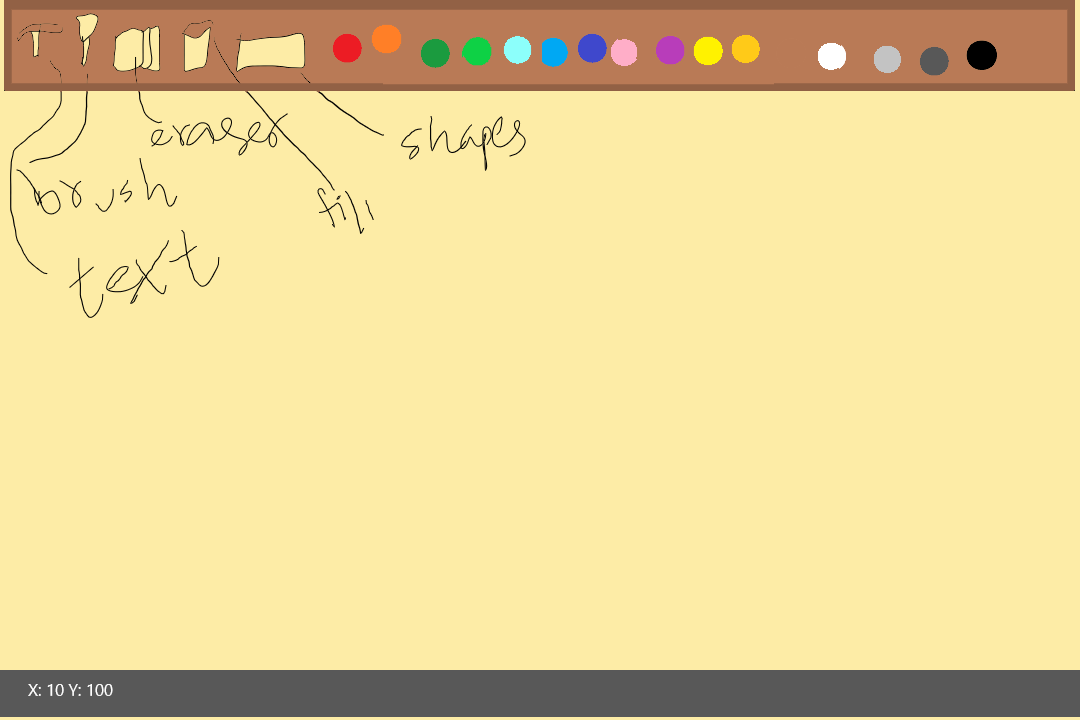 eraser
shapes
brush
fill
text
X: 10 Y: 100